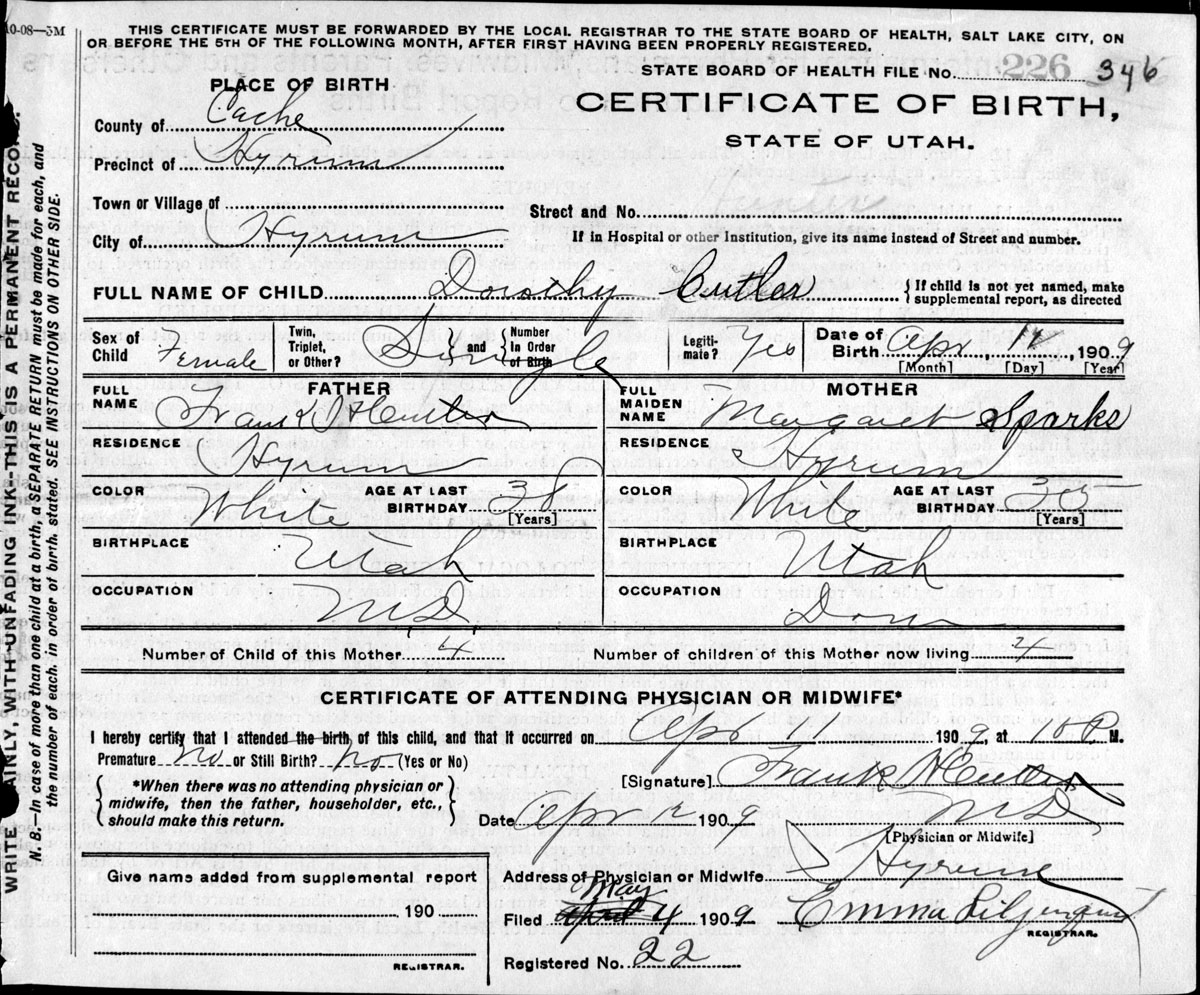 10-08—5M
THIS CERTIFICATE MUST BE FORWARDED BY THE LOCAL REGISTRAR TO THE STATE BOARD OF HEALTH, SALT LAKE CITY, ON
OR BEFORE THE 5TH OF THE FOLLOWING MONTH, AFTER FIRST HAVING BEEN PROPERLY REGISTERED.
STATE BOARD OF HEALTH FILE No. 226 346
PLACE OF BIRTH
CERTIFICATE OF BIRTH,
STATE OF UTAH.
County of Cache
Precinct of Hyrum
Town or Village of
Street and No.
City of Hyrum
If in Hospital or other Institution, give its name instead of Street and number.
FULL NAME OF CHILD Dorothy Cutler { If child is not yet named, make
supplemental report, as directed
Sex of Child Female
Twin, Triplet, or Other? Single } and { Number In Order of Birth
Legiti-mate? Yes
Date of Birth Apr, 1909
[Month] [Day] [Year]
FATHER
FULL NAME Frank H Cutler
MOTHER
FULL MAIDEN NAME Margaret Sparks
RESIDENCE Hyrum
RESIDENCE Hyrum
COLOR White AGE AT LAST BIRTHDAY 38 [Years]
COLOR White AGE AT LAST BIRTHDAY 35 [Years]
BIRTHPLACE Utah
BIRTHPLACE Utah
OCCUPATION M.D.
OCCUPATION Dom
Number of Child of this Mother 4 Number of children of this Mother now living 4
CERTIFICATE OF ATTENDING PHYSICIAN OR MIDWIFE*
I hereby certify that I attended the birth of this child, and that it occurred on Apr 11 1909, at 10 P M.
Premature no or Still Birth? no (Yes or No)
[Signature] Frank H Cutler
*When there was no attending physician or
midwife, then the father, householder, etc.,
should make this return.
Date Apr 12 1909 MD
[Physician or Midwife]
Give name added from supplemental report
190
REGISTRAR.
Address of Physician or Midwife Hyrum
Filed May April 4 1909 Emma Liljenquist
REGISTRAR.
Registered No. 22
WRITE PLAINLY, WITH UNFADING INK--THIS IS A PERMANENT RECORD.
N. B.—In case of more than one child at a birth, a SEPARATE RETURN must be made for each, and
the number of each, in order of birth, stated. SEE INSTRUCTIONS ON OTHER SIDE.